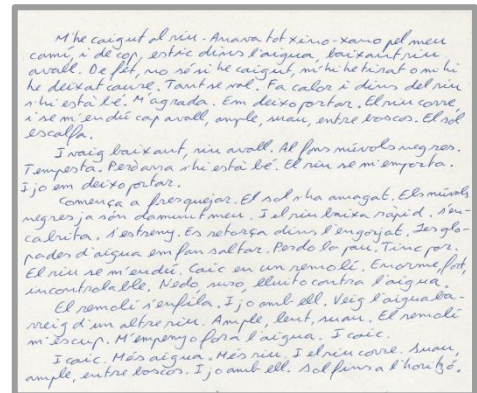 M'he caigut al riu. Anava tot xino-xano pel meu
camí, i de cop, estic dins l'aigua, baixant riu
avall. De fet, no sé si he caigut, m'hi he tirat o m'hi
he deixat caure. Tant se val. Fa calor i dins del riu
s'hi està bé. M'agrada. Em deixo portar. El riu corre,
i se m'endú cap avall, ample, suau, entre boscos. El sol
escalfa.
I vaig baixant, riu avall. Al fons núvols negres.
Tempesta. Però ara s'hi està bé. El riu se m'emporta.
I jo em deixo portar.
Comença a fresquejar. El sol s'ha amagat. Els núvols
negres ja són damunt meu. I el riu baixa ràpid. S'en-
cabrita. S'estreny. Es retorça dins l'engorjat. Les glo-
pades d'aigua em fan saltar. Perdo la pau. Tinc por.
El riu se m'endú. Caic en un remolí. Enorme, fort,
incontrolable. Nedo, suro, lluito contra l'aigua.
El remolí s'enfila. I jo amb ell. Veig l'aigua ba-
rreig d'un altre riu. Ample, lent, suau. El remolí
m'escup. M'empeny a fora l'aigua. I caic.
I caic. Més aigua. Més riu. I el riu corre. Suau,
ample, entre boscos. I jo amb ell. Sol fins a l'horitzó.